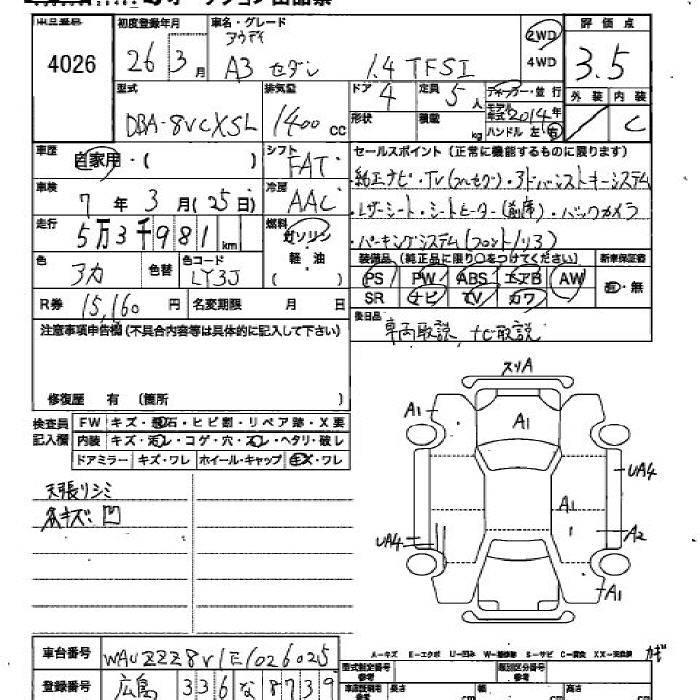 4026
初度登録年月
26 3月
車名・グレード
アウディ
A3 セダン 1.4 TFSI
2WD
4WD
評価点
3.5
外装 内装
C
型式
DBA-8VCXSL
排気量
1400 cc
ドア 4
定員 5人
形状
積載 kg
ディーラー・並行
モデル年式 2014年
ハンドル 左・右
車歴
自家用・( )
シフト
FAT
車検
7年 3月(25日)
冷房
AAC
走行
5万3千981km
燃料
ガソリン
軽・油
( )
色
アカ
色替
色コード
LY3J
R券 15,160円
名変期限 月 日
セールスポイント(正常に機能するものに限ります)
・純正ナビ・TV(フルセグ)・アドバンストキーシステム
・レザーシート・シートヒーター(前席)・バックカメラ
・パーキングシステム(フロント/リヤ)
装備品(純正品に限り○をつけてください)
新車保証書
PS PW ABS エアB AW
SR ナビ TV カワ
・無
後日品
車両取説、ナビ取説
注意事項申告欄(不具合内容等は具体的に記入して下さい)
修復歴 有 (箇所 )
検査員記入欄
FW キズ・飛石・ヒビ割・リペア跡・X要
内装 キズ・汚レ・コゲ・穴・スレ・ヘタリ・破レ
ドアミラー キズ・ワレ ホイール・キャップ キズ・ワレ
天張リシミ
各キズ凹
スリA
A1
A1
UA4
A1
UA4
A2
A1
車台番号 WAUZZZ8V1E1026025
登録番号 広島 336 な 8739
A－キズ E－エクボ U－凹み W－補修跡 S－サビ C－腐食 XX－交換済
カギ
型式指定番号
類別区分番号
長さ cm
幅 cm
高さ cm